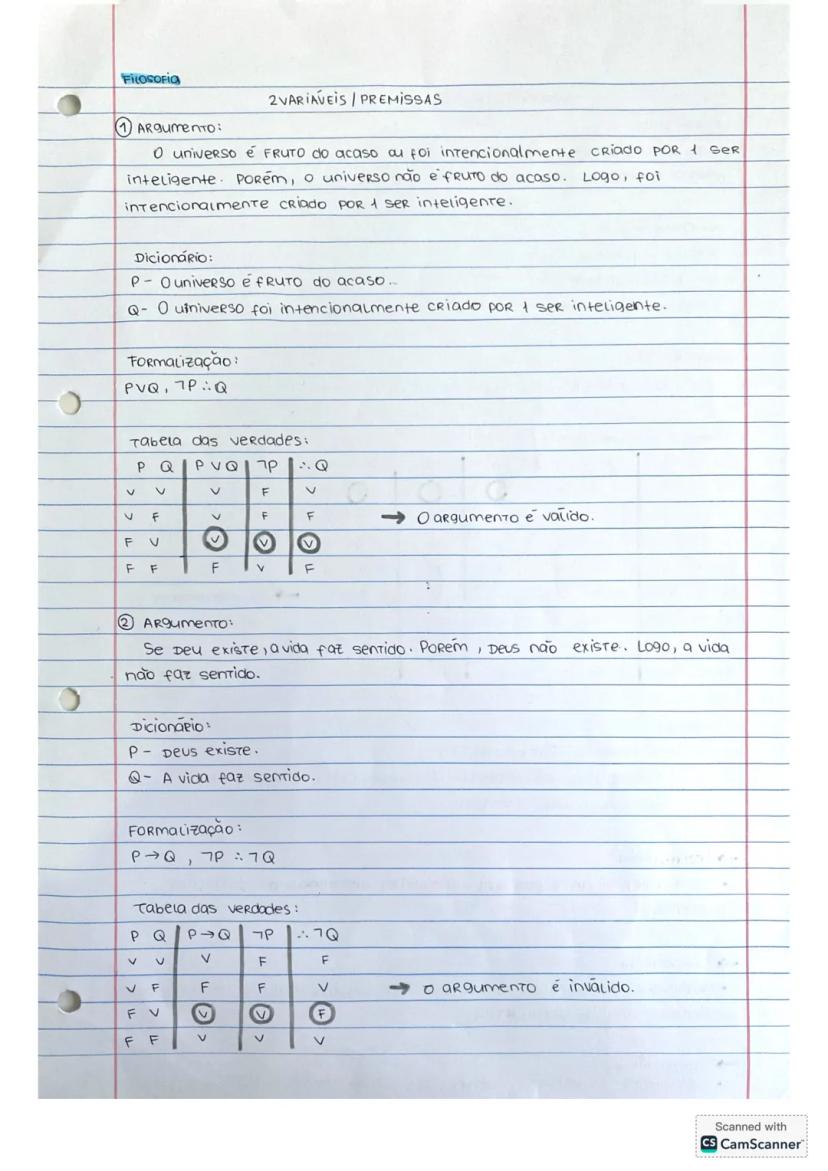 Filosofia
2 VARIÁVEIS / PREMISSAS
① Argumento:
O universo é fruto do acaso ou foi intencionalmente criado por 1 ser
inteligente. Porém, o universo não é fruto do acaso. Logo, foi
intencionalmente criado por 1 ser inteligente.
Dicionário:
P - O universo é fruto do acaso..
Q - O uiniverso foi intencionalmente criado por 1 ser inteligente.
Formalização:
P∨Q, ¬P ∴ Q
Tabela das verdades:
P Q | P ∨ Q | ¬P | ∴ Q
V V | V | F | V
V F | V | F | F → O argumento é válido.
F V | V | V | V
F F | F | V | F
② Argumento:
Se Deu existe, a vida faz sentido. Porém, Deus não existe. Logo, a vida
não faz sentido.
Dicionário:
P - Deus existe.
Q - A vida faz sentido.
Formalização:
P → Q, ¬P ∴ ¬Q
Tabela das verdades:
P Q | P → Q | ¬P | ∴ ¬Q
V V | V | F | F
V F | F | F | V → O argumento é inválido.
F V | V | V | F
F F | V | V | V
Scanned with
CS CamScanner